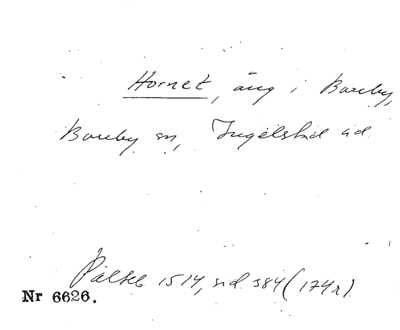 Hornet, äng i Borrby,
Borrby sn, Ingelstad hd
Pálseb 1514, sid 384 (174r)
Nr 6626.